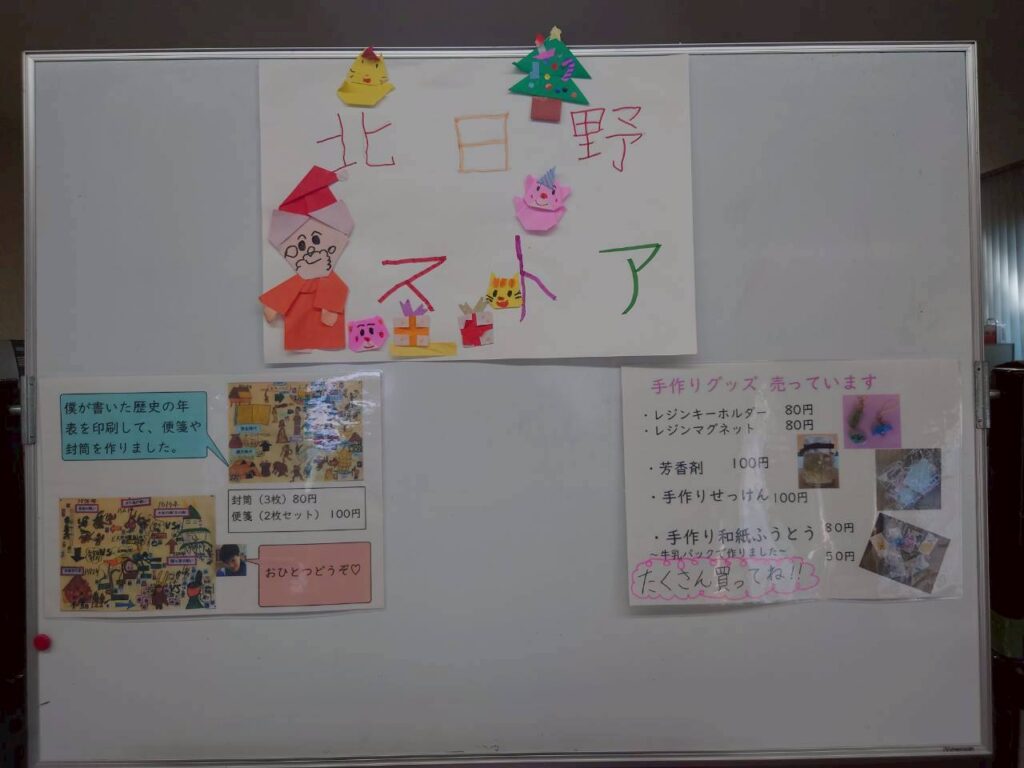 北日野
ストア
僕が書いた歴史の年
表を印刷して、便箋や
封筒を作りました。
封筒(3枚)80円
便箋(2枚セット) 100円
おひとつどうぞ♡
手作りグッズ 売っています
・レジンキーホルダー 80円
・レジンマグネット 80円
・芳香剤 100円
・手作りせっけん 100円
・手作り和紙ふうとう 80円
～牛乳パックで作りました～ 50円
たくさん買ってね!!